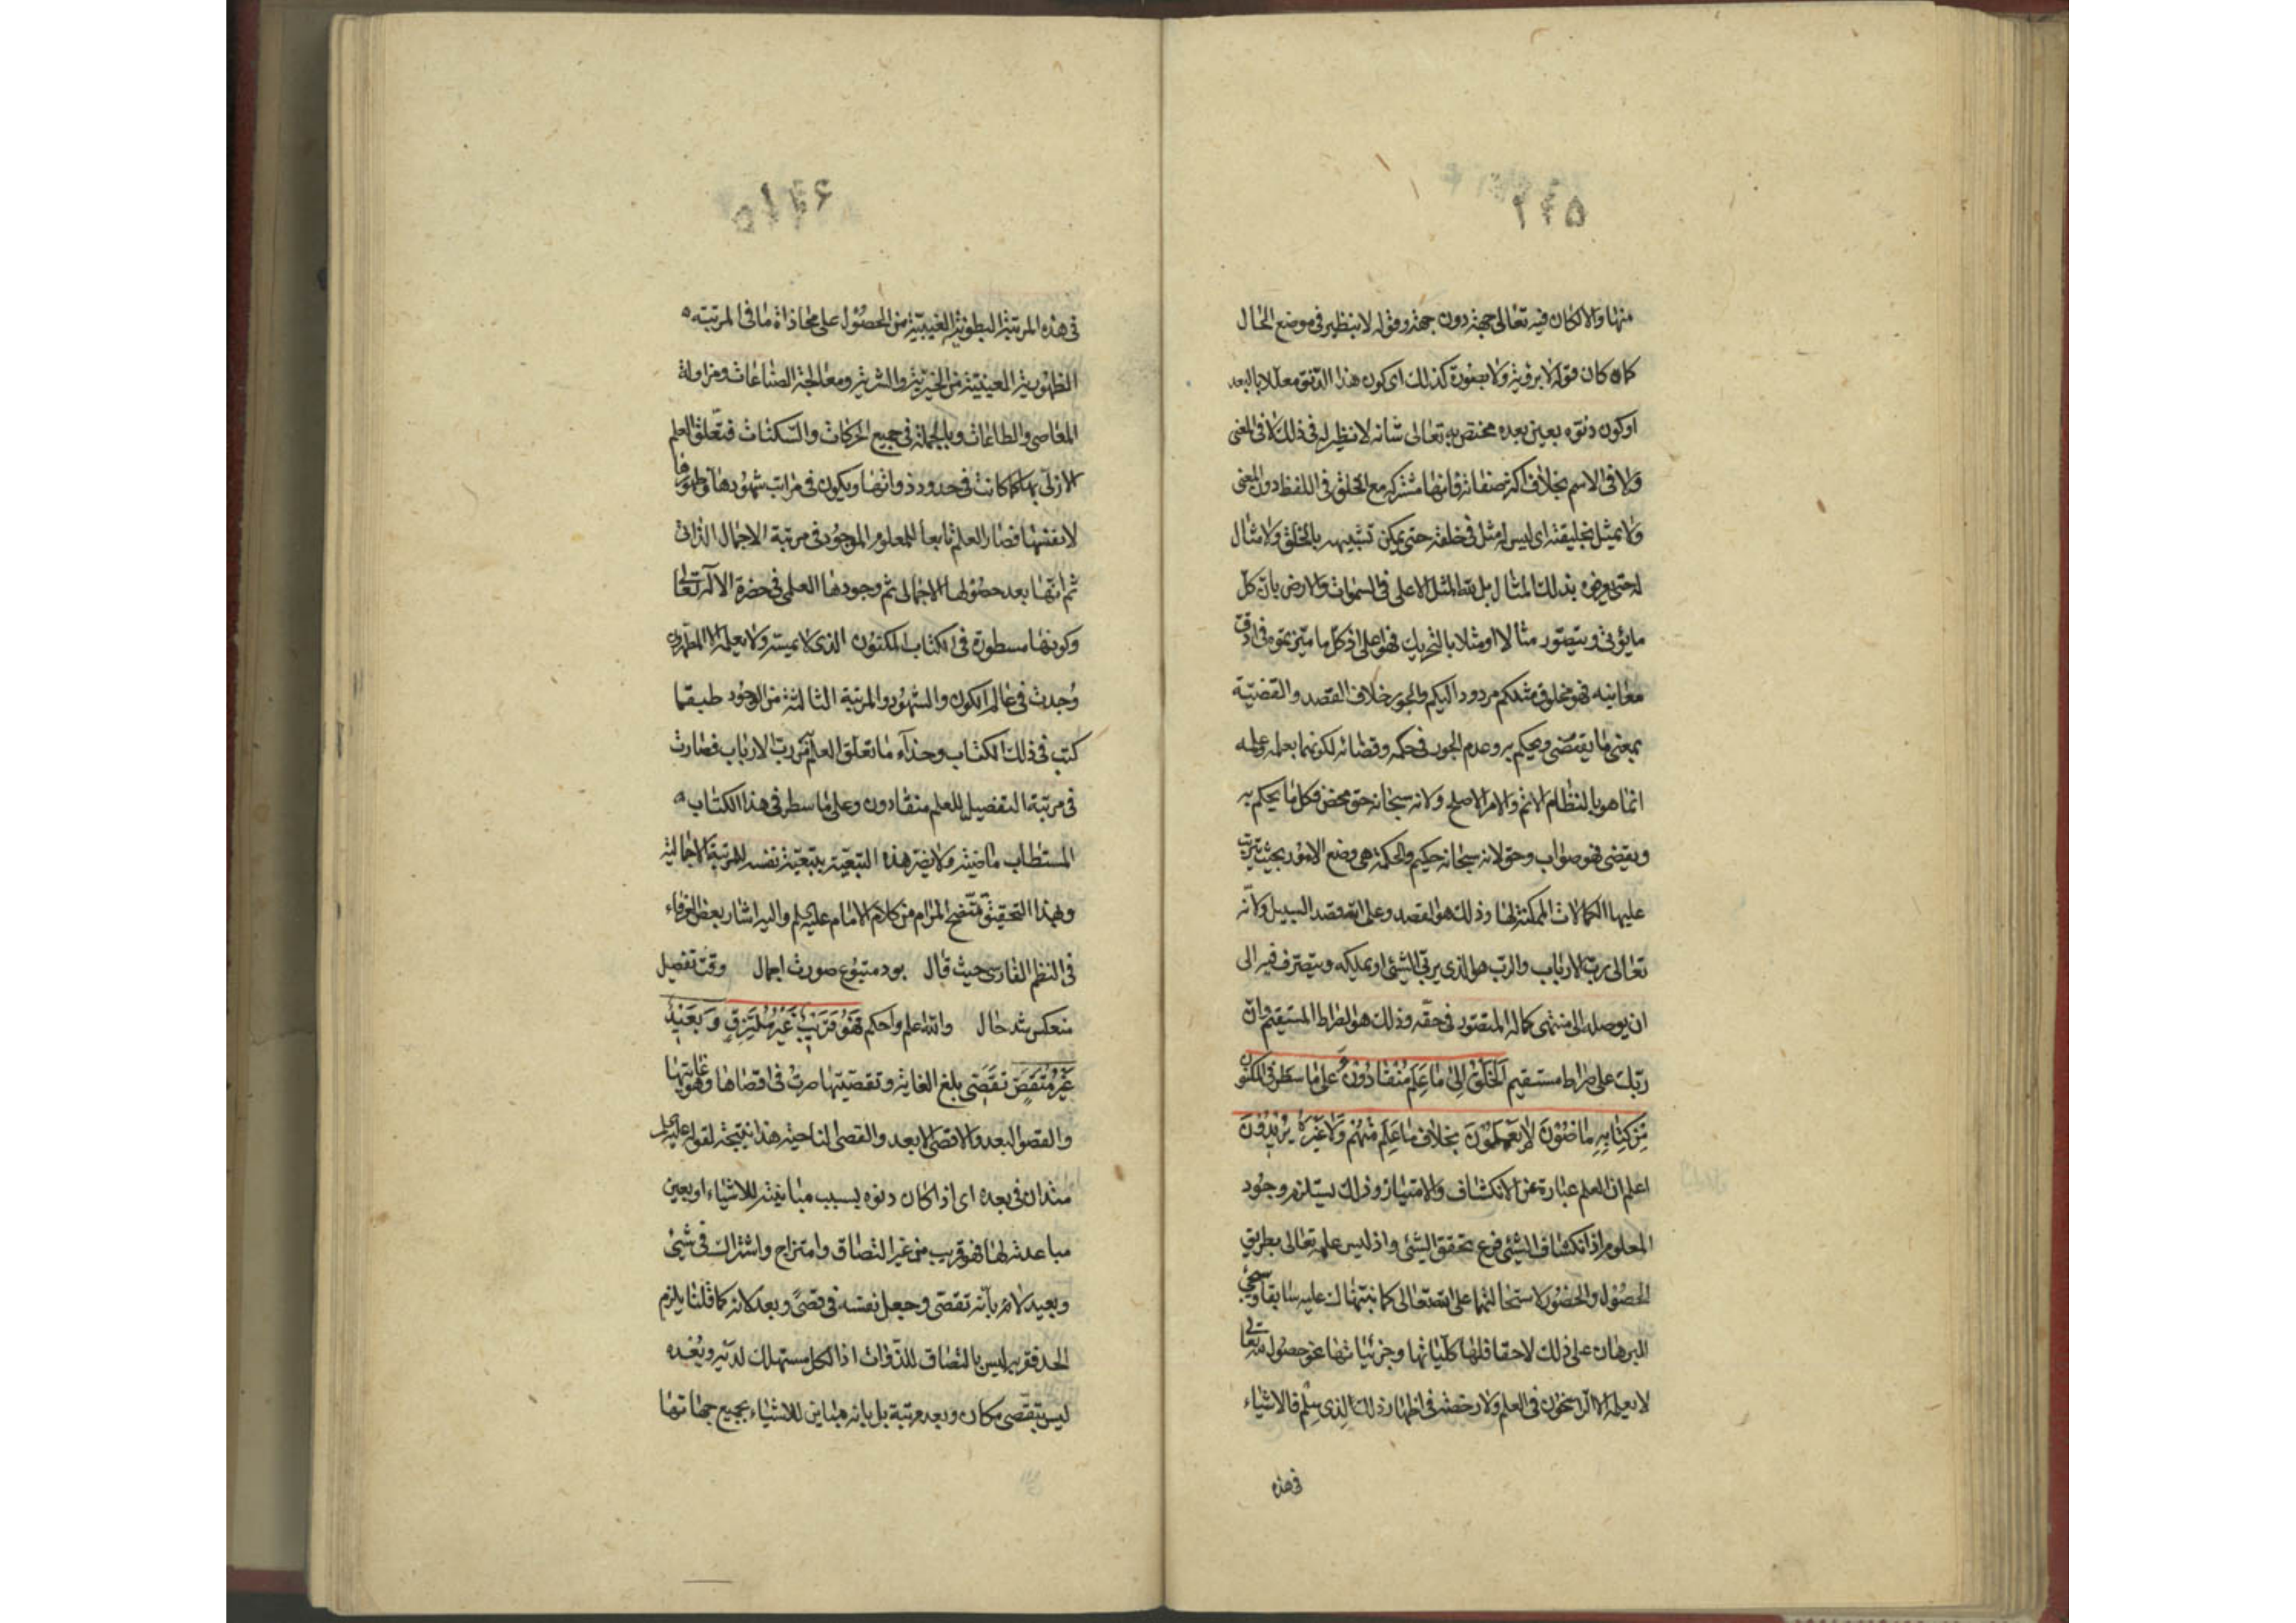 ۲۴۵
منها والا لكان فيه تعالى جهة دون جهة وقوله لا بنظير فى موضع الحال
كما ان كان قوله لا برؤية ولا بعورة كذلك اى كون هذا الدنو معللا بالبعد
او كون دنوه بعين بعده مختص به تعالى شانه لا نظير له فى ذلك لا فى المعنى
ولا فى الاسم بخلاف اكثر صفاته فانها مشتركة مع الخلق فى اللفظ دون المعنى
ولا تمثيل بخليقته اى ليس له مثل فى خلقه حتى يمكن تشبيهه بالخلق ولا مثال
له حتى يعرفوه بذلك المثال بل لله المثل الاعلى فى السموات والارض بان كل
ما يؤتى ويتصور مثالا او مثلا بالتحريك فهو اعلى اذ كل ما ميزتموه فى ادق
معانيه فهو مخلوق مثلكم مردود اليكم والجور خلاف القصد والقضية
بمعنى ما يقتضى ويحكم به وعدم الجور فى حكمه وقضائه لكونهما بعلمه وعلمه
انما هو بالنظام الاتم والامر الاصلح ولانه سبحانه حق محض فكل ما يحكم به
ويقضى فهو صواب وحق لانه سبحانه حكيم والحكمة هى وضع الامور بحيث يترتب
عليها الكمالات الممكنة لها وذلك هو القصد وعلى الله قصد السبيل ولانه
تعالى رب الارباب والرب هو الذى يربى الشئ او يملكه ويتصرف فيه الى
ان يوصله الى منتهى كماله المتصور فى حقه وذلك هو الصراط المستقيم وان
ربك على صراط مستقيم اَلخَلْقُ اِلى مَا عَلِمَ مُنْقَادُونَ وَعَلى مَا سَطَرَ فِى المكنون
مِنْ كِتَابِهِ مَاضُونَ لا يَعْمَلُونَ بِخِلافِ مَا عَلِمَ مِنْهُمْ وَلا غَيْرَهُ يُرِيدُونَ
اعلم ان العلم عبارة عن الانكشاف والامتياز وذلك يستلزم وجود
المعلوم اذ انكشاف الشئ فرع تحقق الشئ واذ ليس علمه تعالى بطريق
الحصول والحضور لاستحالتهما على الله تعالى كما نبهناك عليه سابقا وسيجئ
البرهان على ذلك لاحقا فلها كلياتها وجزئياتها نحو حصول لله تعالى
لا يعلمه الا الراسخون فى العلم ولا رخصة فى اظهار ذلك الذى سلم فالاشياء
فى هذه
۲۴۶
فى هذه المرتبة البطونية الغيبية من الحصول على محاذاة ما فى المرتبة
الظهورية العينية من الخيرية والشرية ومعالجة الصناعات ومزاولة
المعاصى والطاعات وبالجملة فى جميع الحركات والسكنات فتعلق العلم
الازلى بها كما كانت فى حدود ذواتها ويكون فى مراتب شهودها وظهورها
لانفسها فصار العلم تابعا للمعلوم الموجود فى مرتبة الاجمال الذاتى
ثم انها بعد حصولها الاجمالى ثم وجودها العلمى فى حضرة الاله تعالى
وكونها مسطورة فى الكتاب المكنون الذى لا يمسه ولا يعلمه الا المطهرون
وُجدت فى عالم الكون والشهود والمرتبة الثالثة من الوجود طبق ما
كتب فى ذلك الكتاب وحذاء ما تعلق العلم من رب الارباب فصارت
فى مرتبة التفصيل للعلم منقادون وعلى ما سطر فى هذا الكتاب
المستطاب ماضية ولا يضر هذه التبعية بتبعية نفسه للمرتبة الاجمالية
وبهذا التحقيق يتضح المرام من كلام الامام عليه السلم واليه اشار بعض العرفاء
فى النظم الفارسى حيث قال بود متبوع صورت اجمال وقت تفصيل
منعكس شد حال والله اعلم واحكم فَهُوَ قَرِيبٌ غَيْرُ مُلْتَزِقٍ وَبَعِيدٌ
غَيْرُ مُتَقَصٍّ تقصّى بلغ الغاية وتقصيتها صرت فى اقصاها وهو غايتها
والقصو البعد والاقصى الابعد والقصى الناحية هذا نتيجة لقوله عليه السلم
متدان فى بعده اى اذا كان دنوه بسبب مباينته للاشياء او بعين
مباعدته لها فهو قريب من غير التصاق وامتزاج واشتراك فى شئ
وبعيد لا بانه تقصى وجعل نفسه فى قصىً وبعد لانه كما قلنا يلزم
الحد فقربه ليس بالتصاق للذوات اذ الكل مستهلك لديه وبُعده
ليس بتقصى مكان وبعد مرتبة بل بانه مباين للاشياء بجميع جهاتها